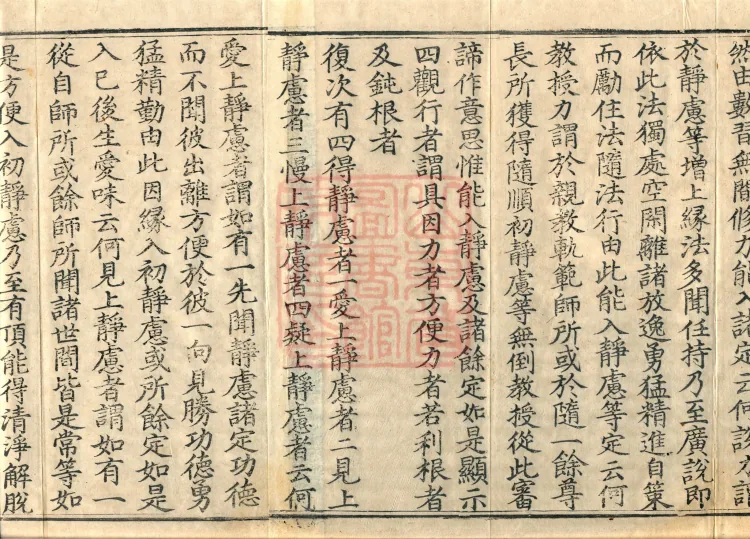 然由數習無間修力能入諸定云何說力謂
於靜慮等增上緣法多聞任持乃至廣說即
依此法獨處空閑離諸放逸勇猛精進自策
而勵住法隨法行由此能入靜慮等定云何
教授力謂於親教軌範師所或於隨一餘尊
長所獲得隨順初靜慮等無倒教授從此審
諦作意思惟能入靜慮及諸餘定如是顯示
四觀行者謂具因力者方便力者若利根者
及鈍根者
復次有四得靜慮者一愛上靜慮者二見上
靜慮者三慢上靜慮者四疑上靜慮者云何
愛上靜慮者謂如有一先聞靜慮諸定功德
而不聞彼出離方便於彼一向見勝功德勇
猛精勤由此因緣入初靜慮或所餘定如是
入已後生愛味云何見上靜慮者謂如有一
從自師所或餘師所聞諸世間皆是常等如
是方便入初靜慮乃至有頂能得清淨解脫